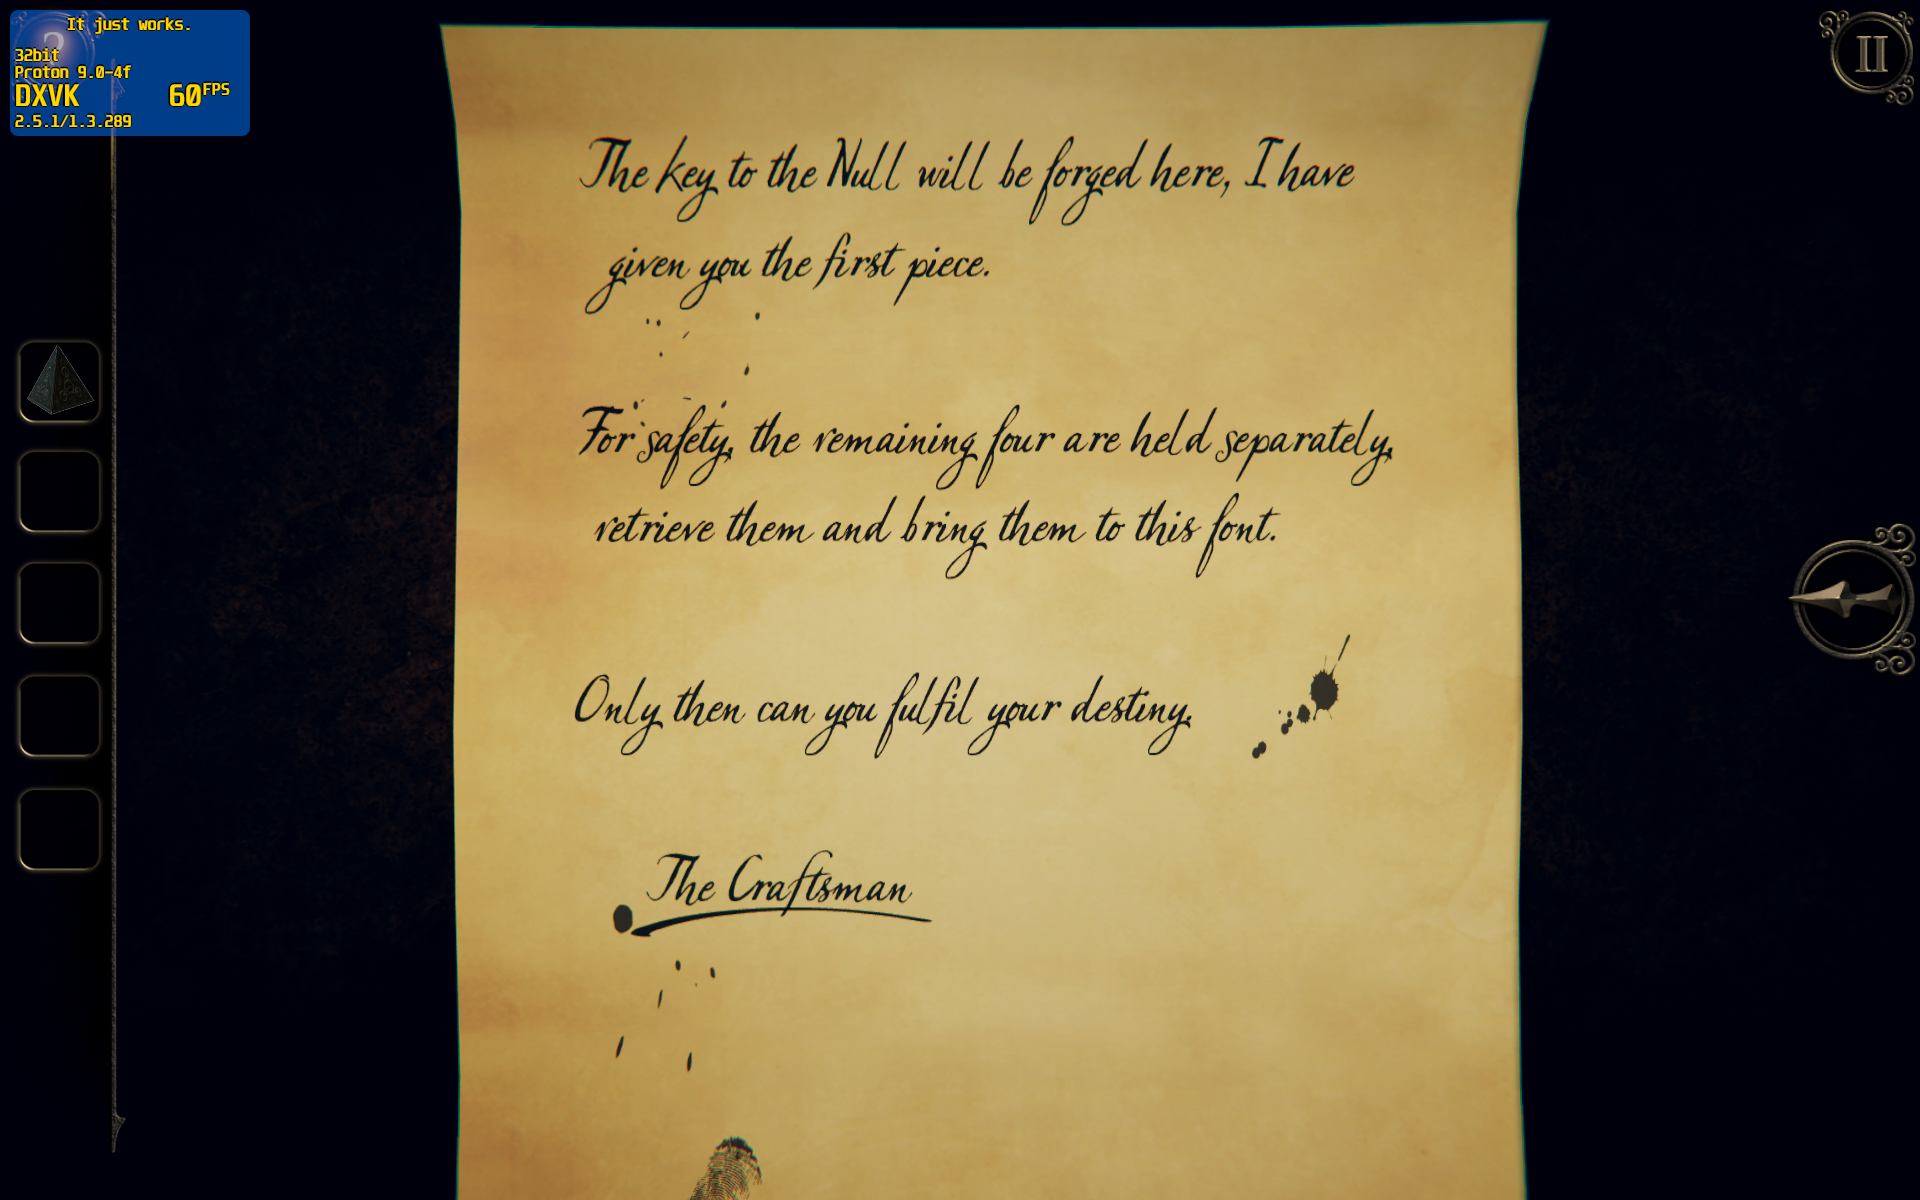 It just works.
32bit
Proton 9.0-4f
DXVK 60FPS
2.5.1/1.3.289
The key to the Null will be forged here, I have
given you the first piece.
For safety, the remaining four are held separately,
retrieve them and bring them to this font.
Only then can you fulfil your destiny.
The Craftsman
II